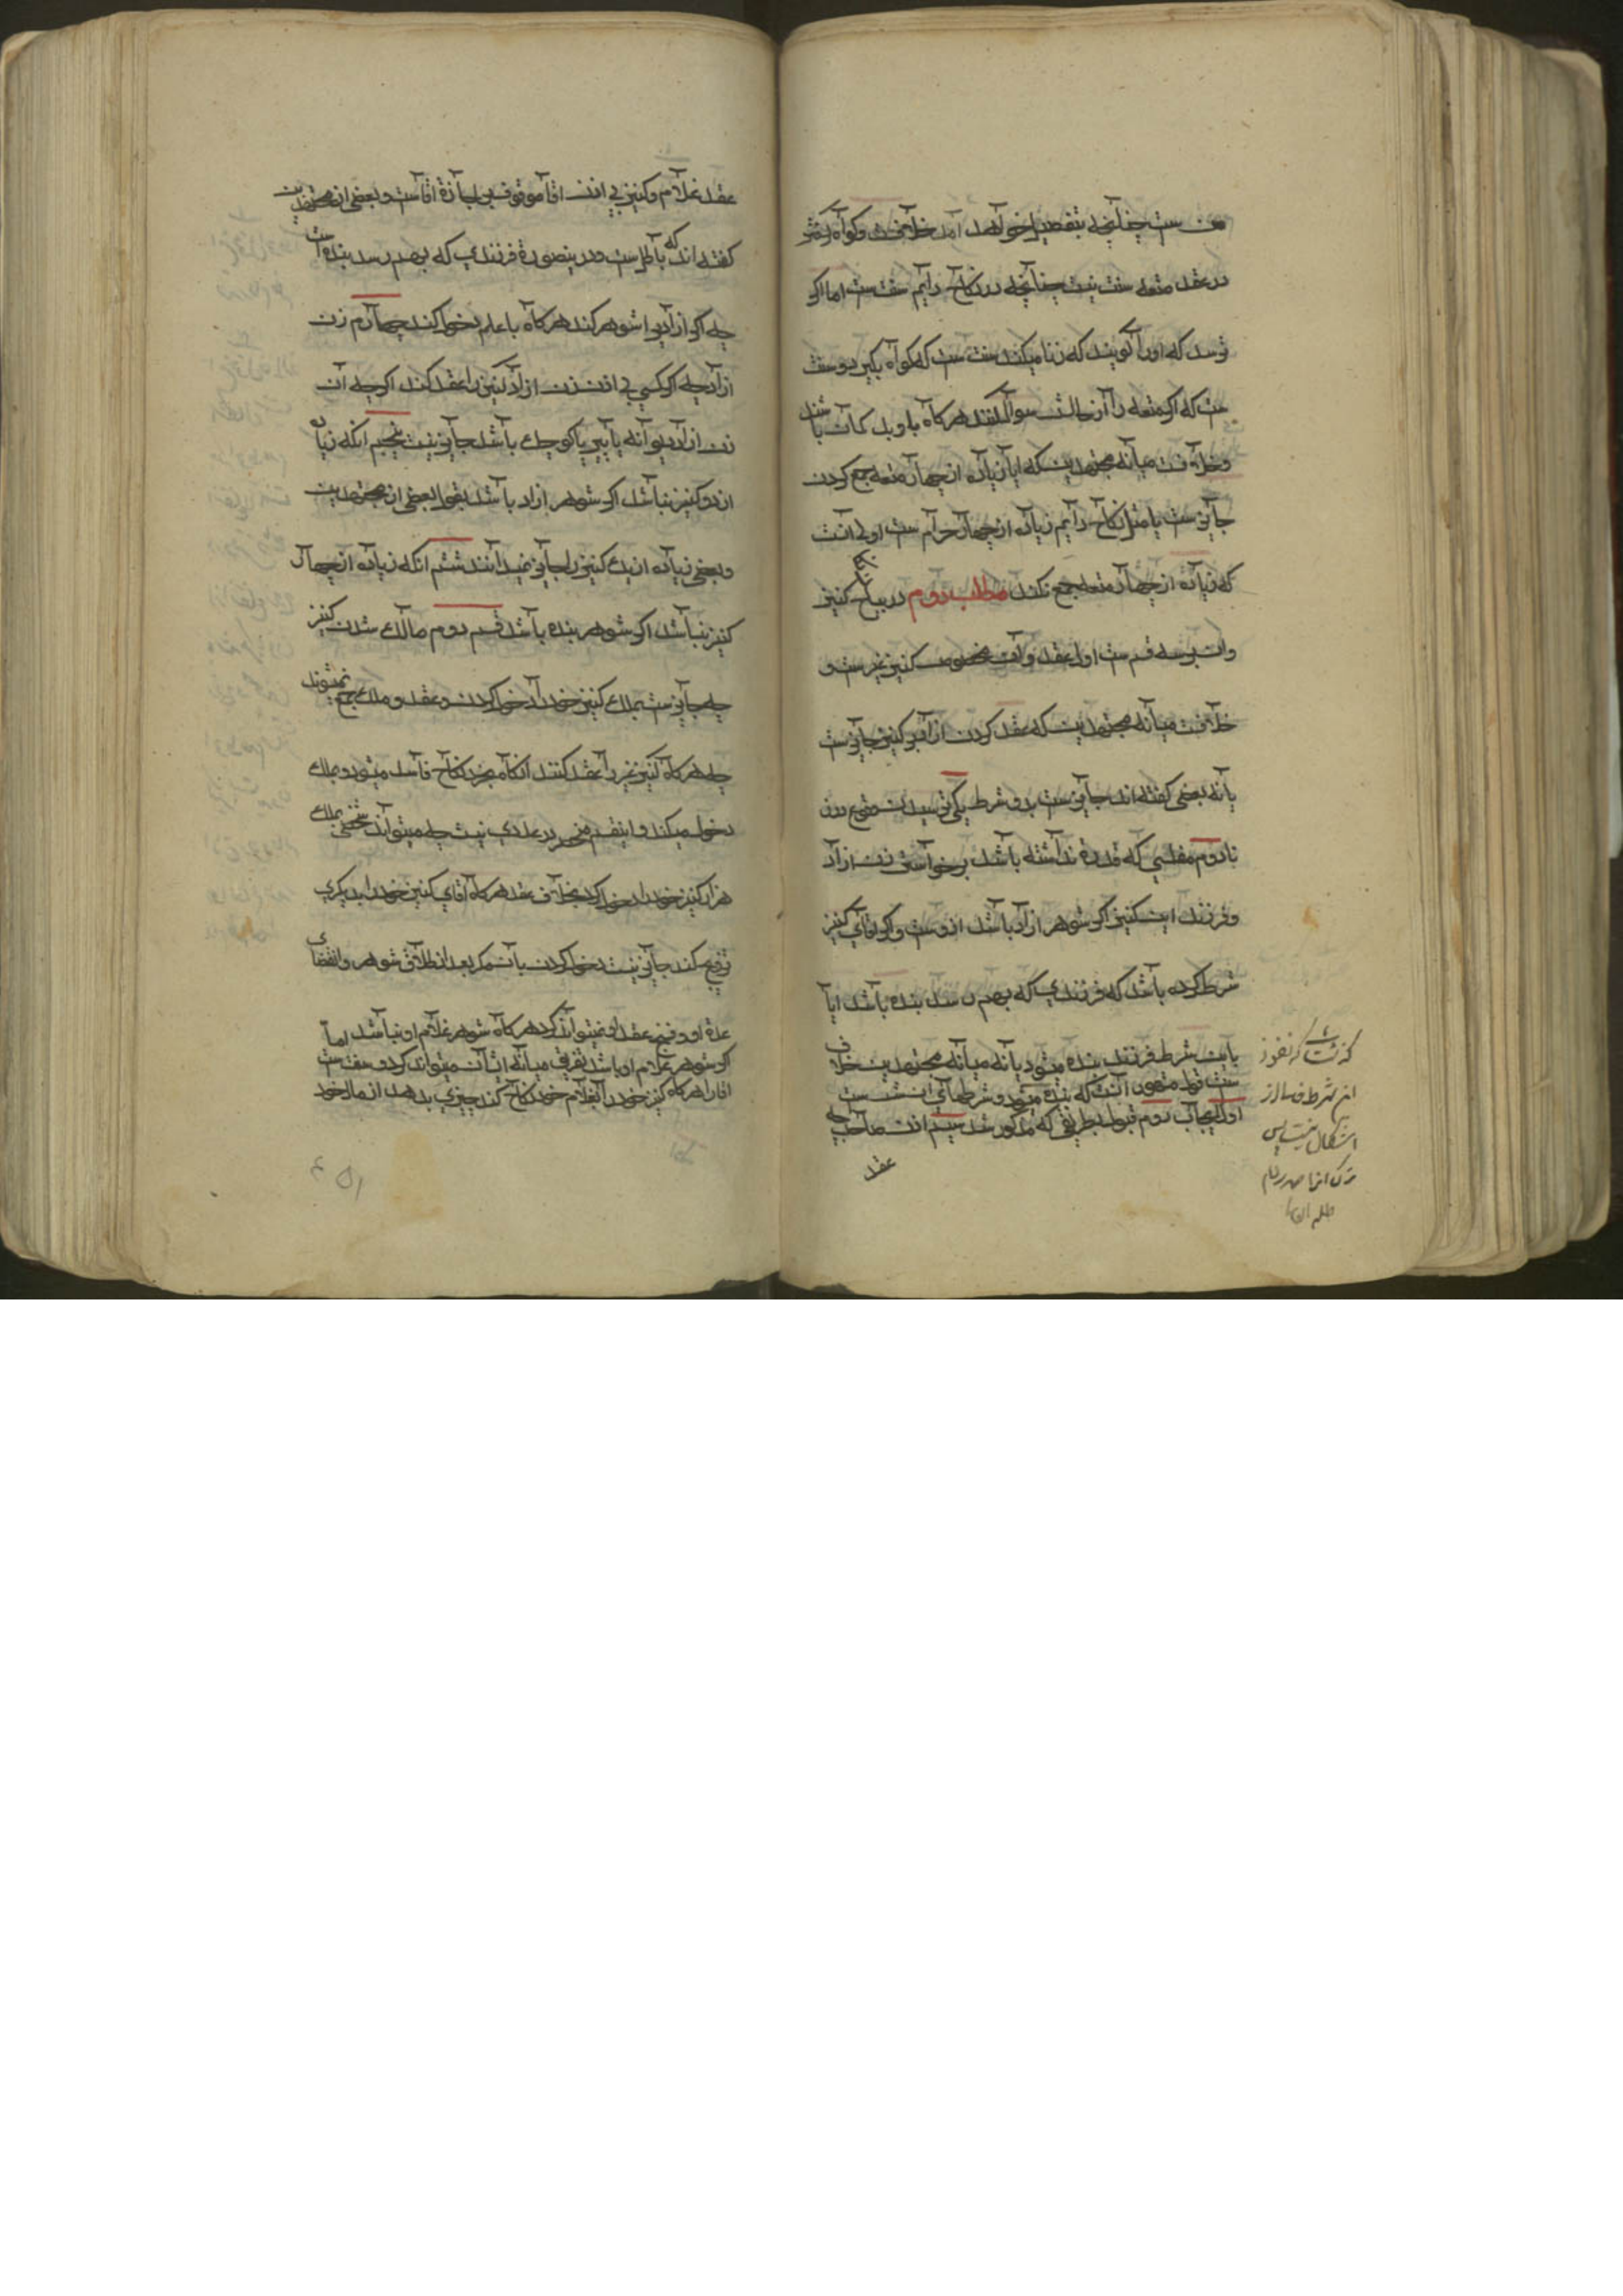 ست چنانچه بتفصیل خواهد آمد خلافست و کواه کرفتن
در عقد متعه سنت نیست چنانچه در نکاح دایم سنت ست اما اکر
ترسد که اورا کویند که زنا میکند سنت ست که کواه بکیرد و سنت
ست که اکر متعه را از حالش سوال کنند هرکاه باو بد کمان باشند
و خلافست میانه مجتهدین که ایا زیاده از چهار متعه جمع کردن
جایز ست یا مثل نکاح دایم زیاده از چهار حرام ست اولی انست
که زیاده از چهار متعه جمع نکند مطلب دوم در نکاح کنیز
وان بر سه قسم ست اول عقد و آن مخصوص کنیز غیر ست و
خلافست میانه مجتهدین که عقد کردن ازاد بر کنیز جایز ست
یا نه بعضی کفته اند جایز ست بدو شرط یکی ترسیدن وقوع در زنا
دوم مفلسی که قدرة نداشته باشد بر خواستن زن ازاد
و فرزند این کنیز اکر شوهر ازاد باشد ازوست و اکر اقای کنیز
شرط کرده باشد که فرزندی که بهم رسد بنده باشد ایا
باین شرط فرزند بنده میشود یا نه میانه مجتهدین خلاف
ست قول مشهور انست که بنده میشود و شرطهای ان شش ست
اول ایجاب دوم قبول بطریقی که مذکور شد سیم اذن صاحب چه
عقد
این شرط
اشکال نیست پس
عقد غلام و کنیز بی اذن اقا موقوف بر اجازة اقاست و بعضی از مجتهدین
کفته اند که باطل ست و درینصورة فرزندی که بهم رسد بنده است
چه اکر ازادیرا شوهر کند هرکاه با علم دخول کند چهارم زن
ازاد چه اکر کسی بی اذن زن ازاد کنیز را عقد کند اکرچه آن
زن ازاد دیوانه یا پیر یا کوچک باشد جایز نیست پنجم انکه زیاده
از دو کنیز نباشد اکر شوهر ازاد باشد بقول بعضی از مجتهدین
و بعضی زیاده از یک کنیز را جایز نمیدانند ششم انکه زیاده از چهار
کنیز نباشد اکر شوهر بنده باشد قسم دوم مالک شدن کنیز
چه جایز ست بملک کنیز خود را دخول کردن و عقد و ملک جمع نمیشوند
چه هرکاه کنیز غیر را عقد کنند انکاه بخرد نکاح فاسد میشود و بملک
دخول میکند و اینقسم منحصر در عددی نیست چه میتواند شخصی بملک
هزار کنیز خود را دخول کرد بخلاف عقد هرکاه اقای کنیز خود را بدیکری
تزویج کند جایز نیست دخول کردن بآن مکر بعد از طلاق شوهر و انقضای
عدة او و فسخ عقد او نمیتواند کرد هرکاه شوهر غلام او نباشد اما
اکر شوهر غلام او باشد تفریق میانه ایشان میتواند کرد و سنت ست
اقا را هرکاه کنیز خود را بغلام خود نکاح کند چیزی بدهد از مال خود